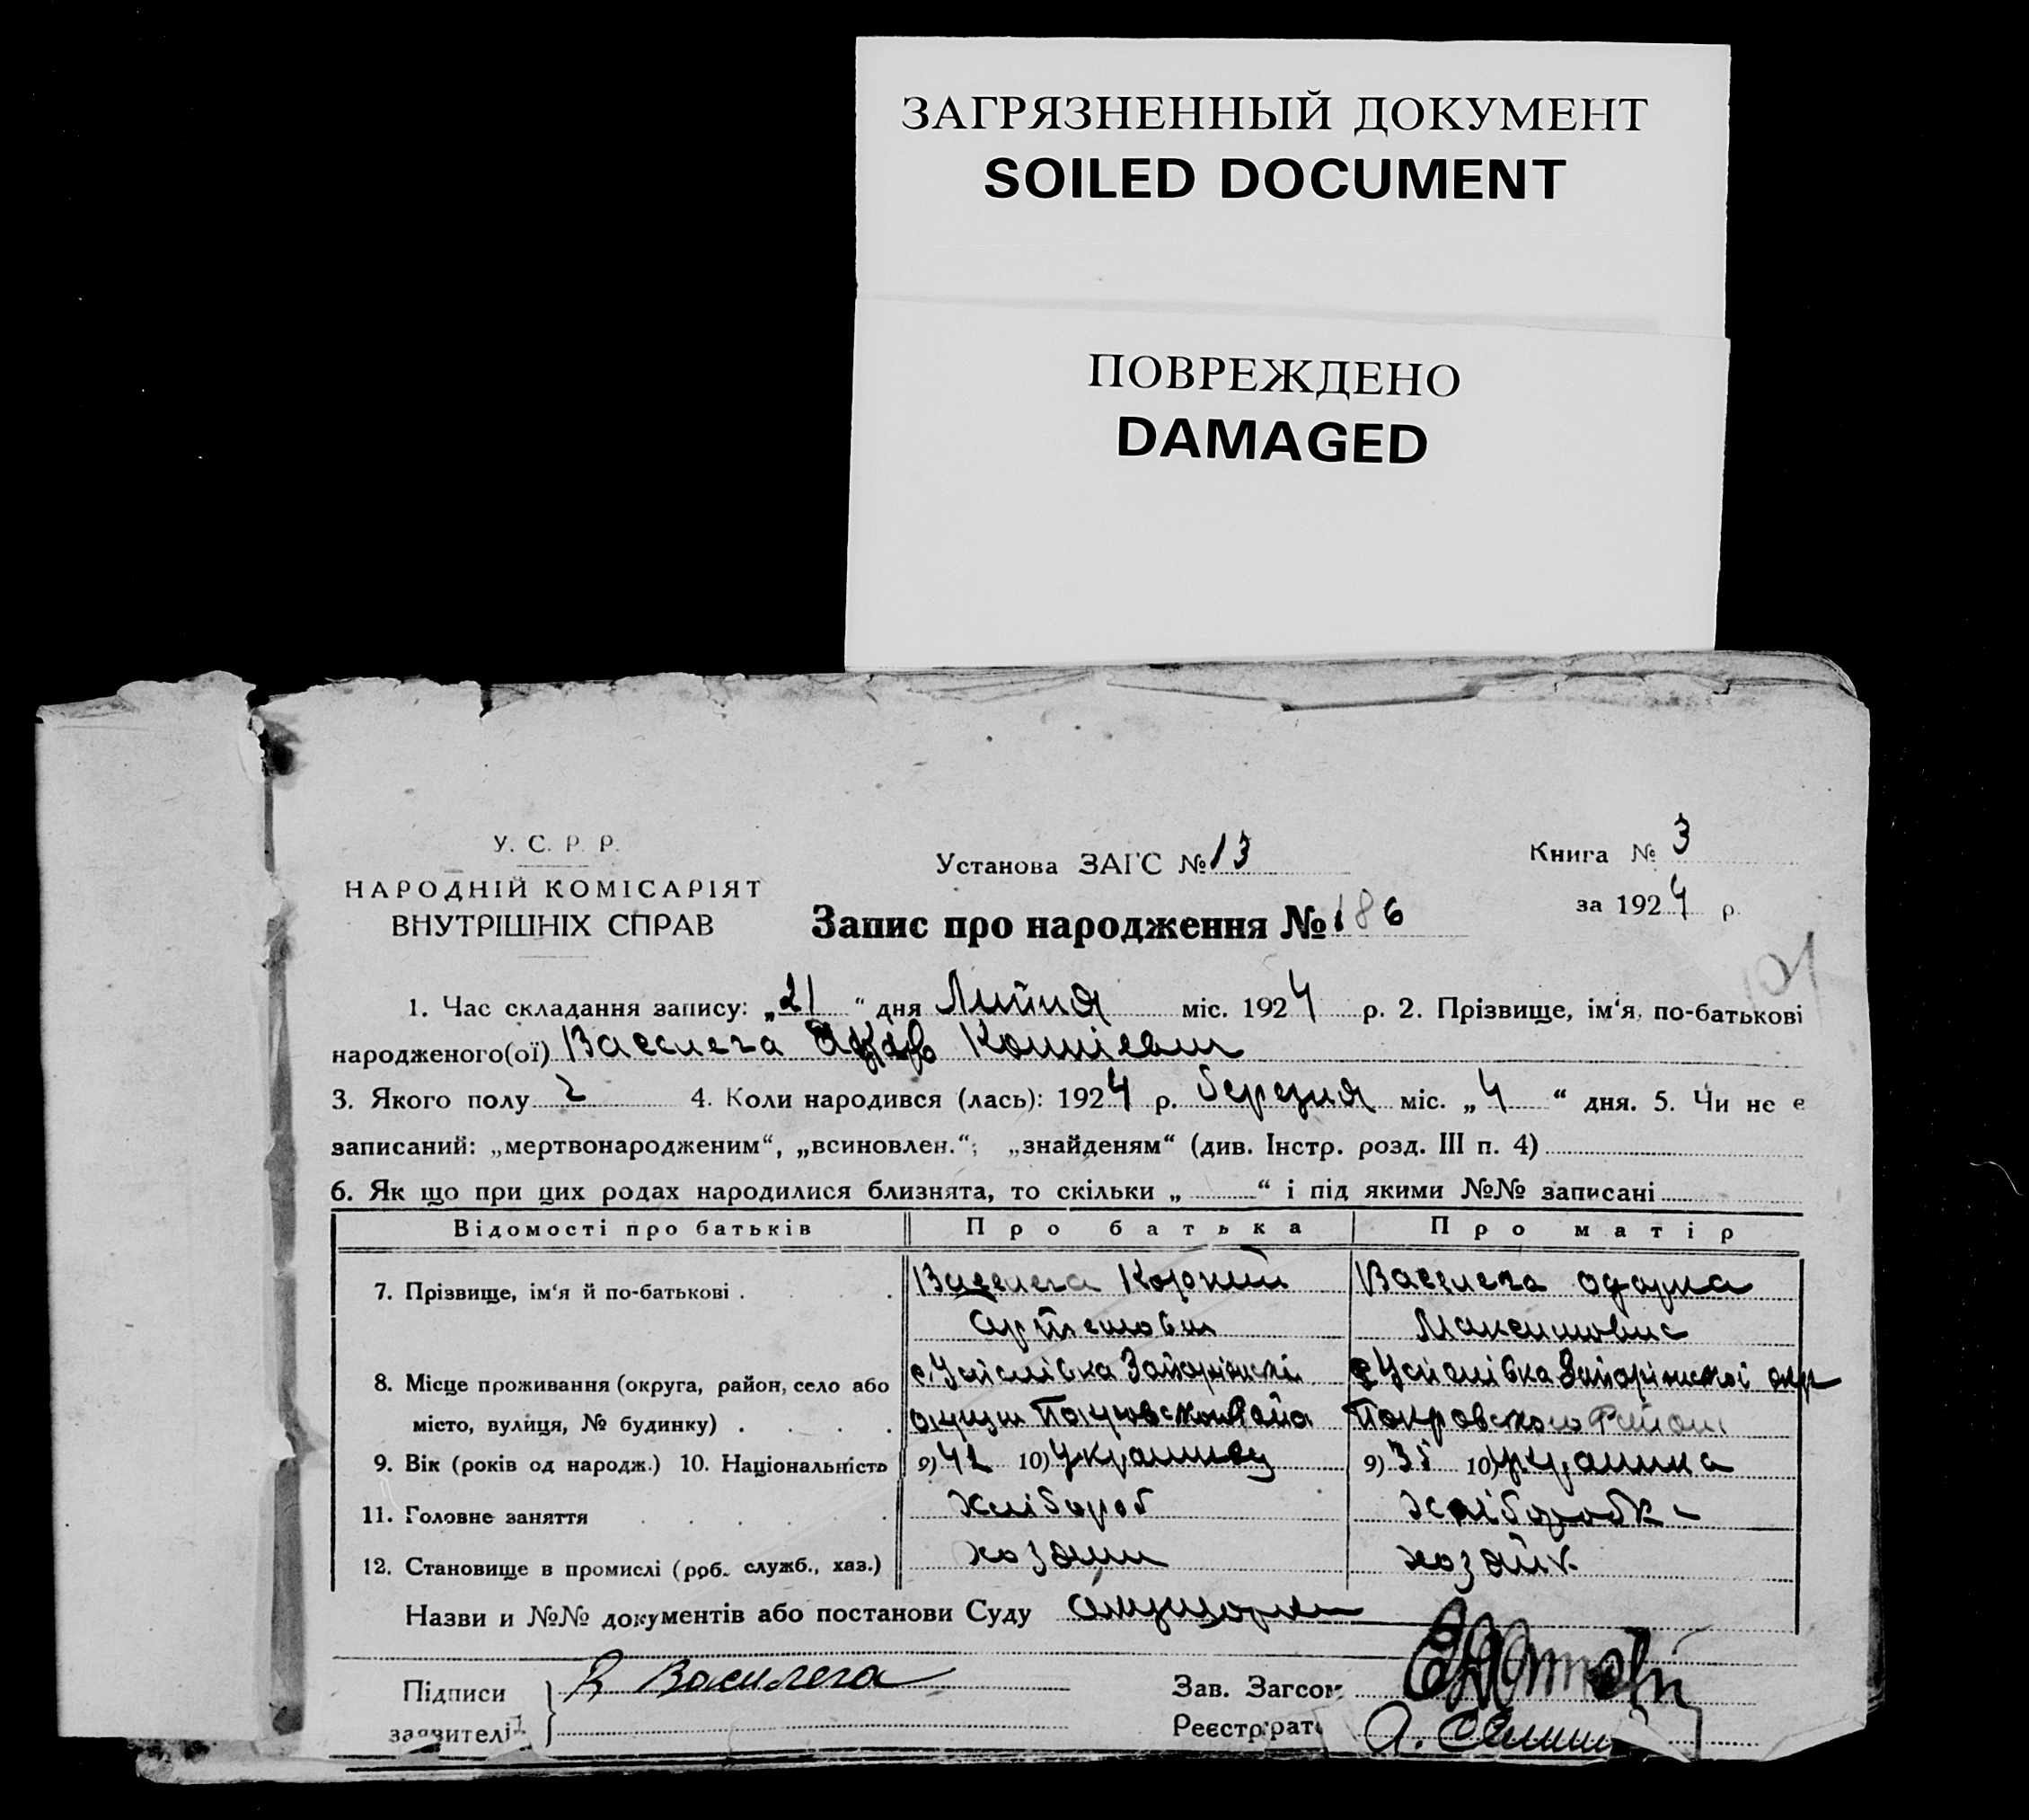 ЗАГРЯЗНЕННЫЙ ДОКУМЕНТ
SOILED DOCUMENT
ПОВРЕЖДЕНО
DAMAGED
У. С. Р. Р.
НАРОДНІЙ КОМІСАРІЯТ
ВНУТРІШНІХ СПРАВ
Установа ЗАГС № 13
Книга № 3
за 1924 р.
Запис про народження № 186
1. Час складання запису: „21“ дня Липня міс. 1924 р. 2. Прізвище, ім‘я, по-батькові
народженого(ої) Василега Яков
3. Якого полу ч 4. Коли народився (лась): 1924 р. березня міс. „4“ дня. 5. Чи не є
записаний: „мертвонародженим“, „всиновлен.“; „знайденям“ (див. Інстр. розд. III п. 4)
6. Як що при цих родах народилися близнята, то скільки „ “ і під якими №№ записані
Відомості про батьків Про батька Про матір
7. Прізвище, ім‘я й по-батькові . . . . Василега Корній Василега одарка
Артемович Максимовна
8. Місце проживання (округа, район, село або
місто, вулиця, № будинку) . . . . Покровского Району
9. Вік (років од народж.) 10. Національність 9) 42 10) Украинец 9) 35 10) украинка
11. Головне заняття . . . . . хлібороб хлібороб
12. Становище в промислі (роб. служб., хаз.) хозяин хозяйк
Назви и №№ документів або постанови Суду
Підписи Василега Зав. Загсом
заявителів Реєстррато